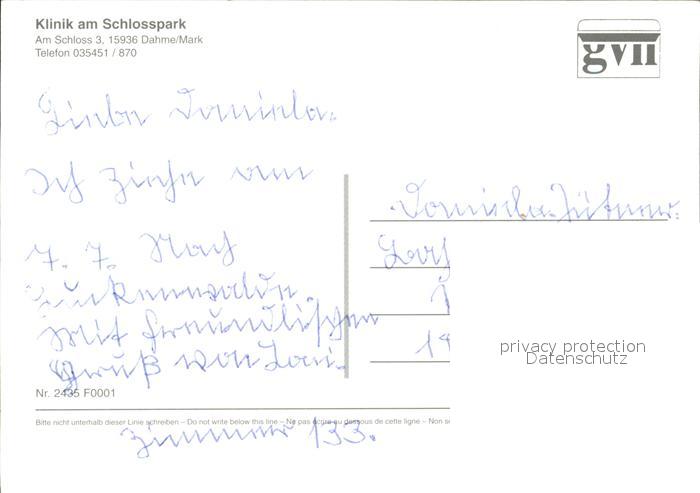 Klinik am Schlosspark
Am Schloss 3, 15936 Dahme/Mark
Telefon 035451 / 870
gvii
Liebe Daniela.
Ich ziehe am
7. 7. Nach
Luckenwalde
Mit freundlichen
Gruß von
Nr. 2435 F0001
Bitte nicht unterhalb dieser Linie schreiben – Do not write below this line – Ne pas écrire au dessous de cette ligne – Non s
Zimmer 133.
Daniela
14
privacy protection
Datenschutz